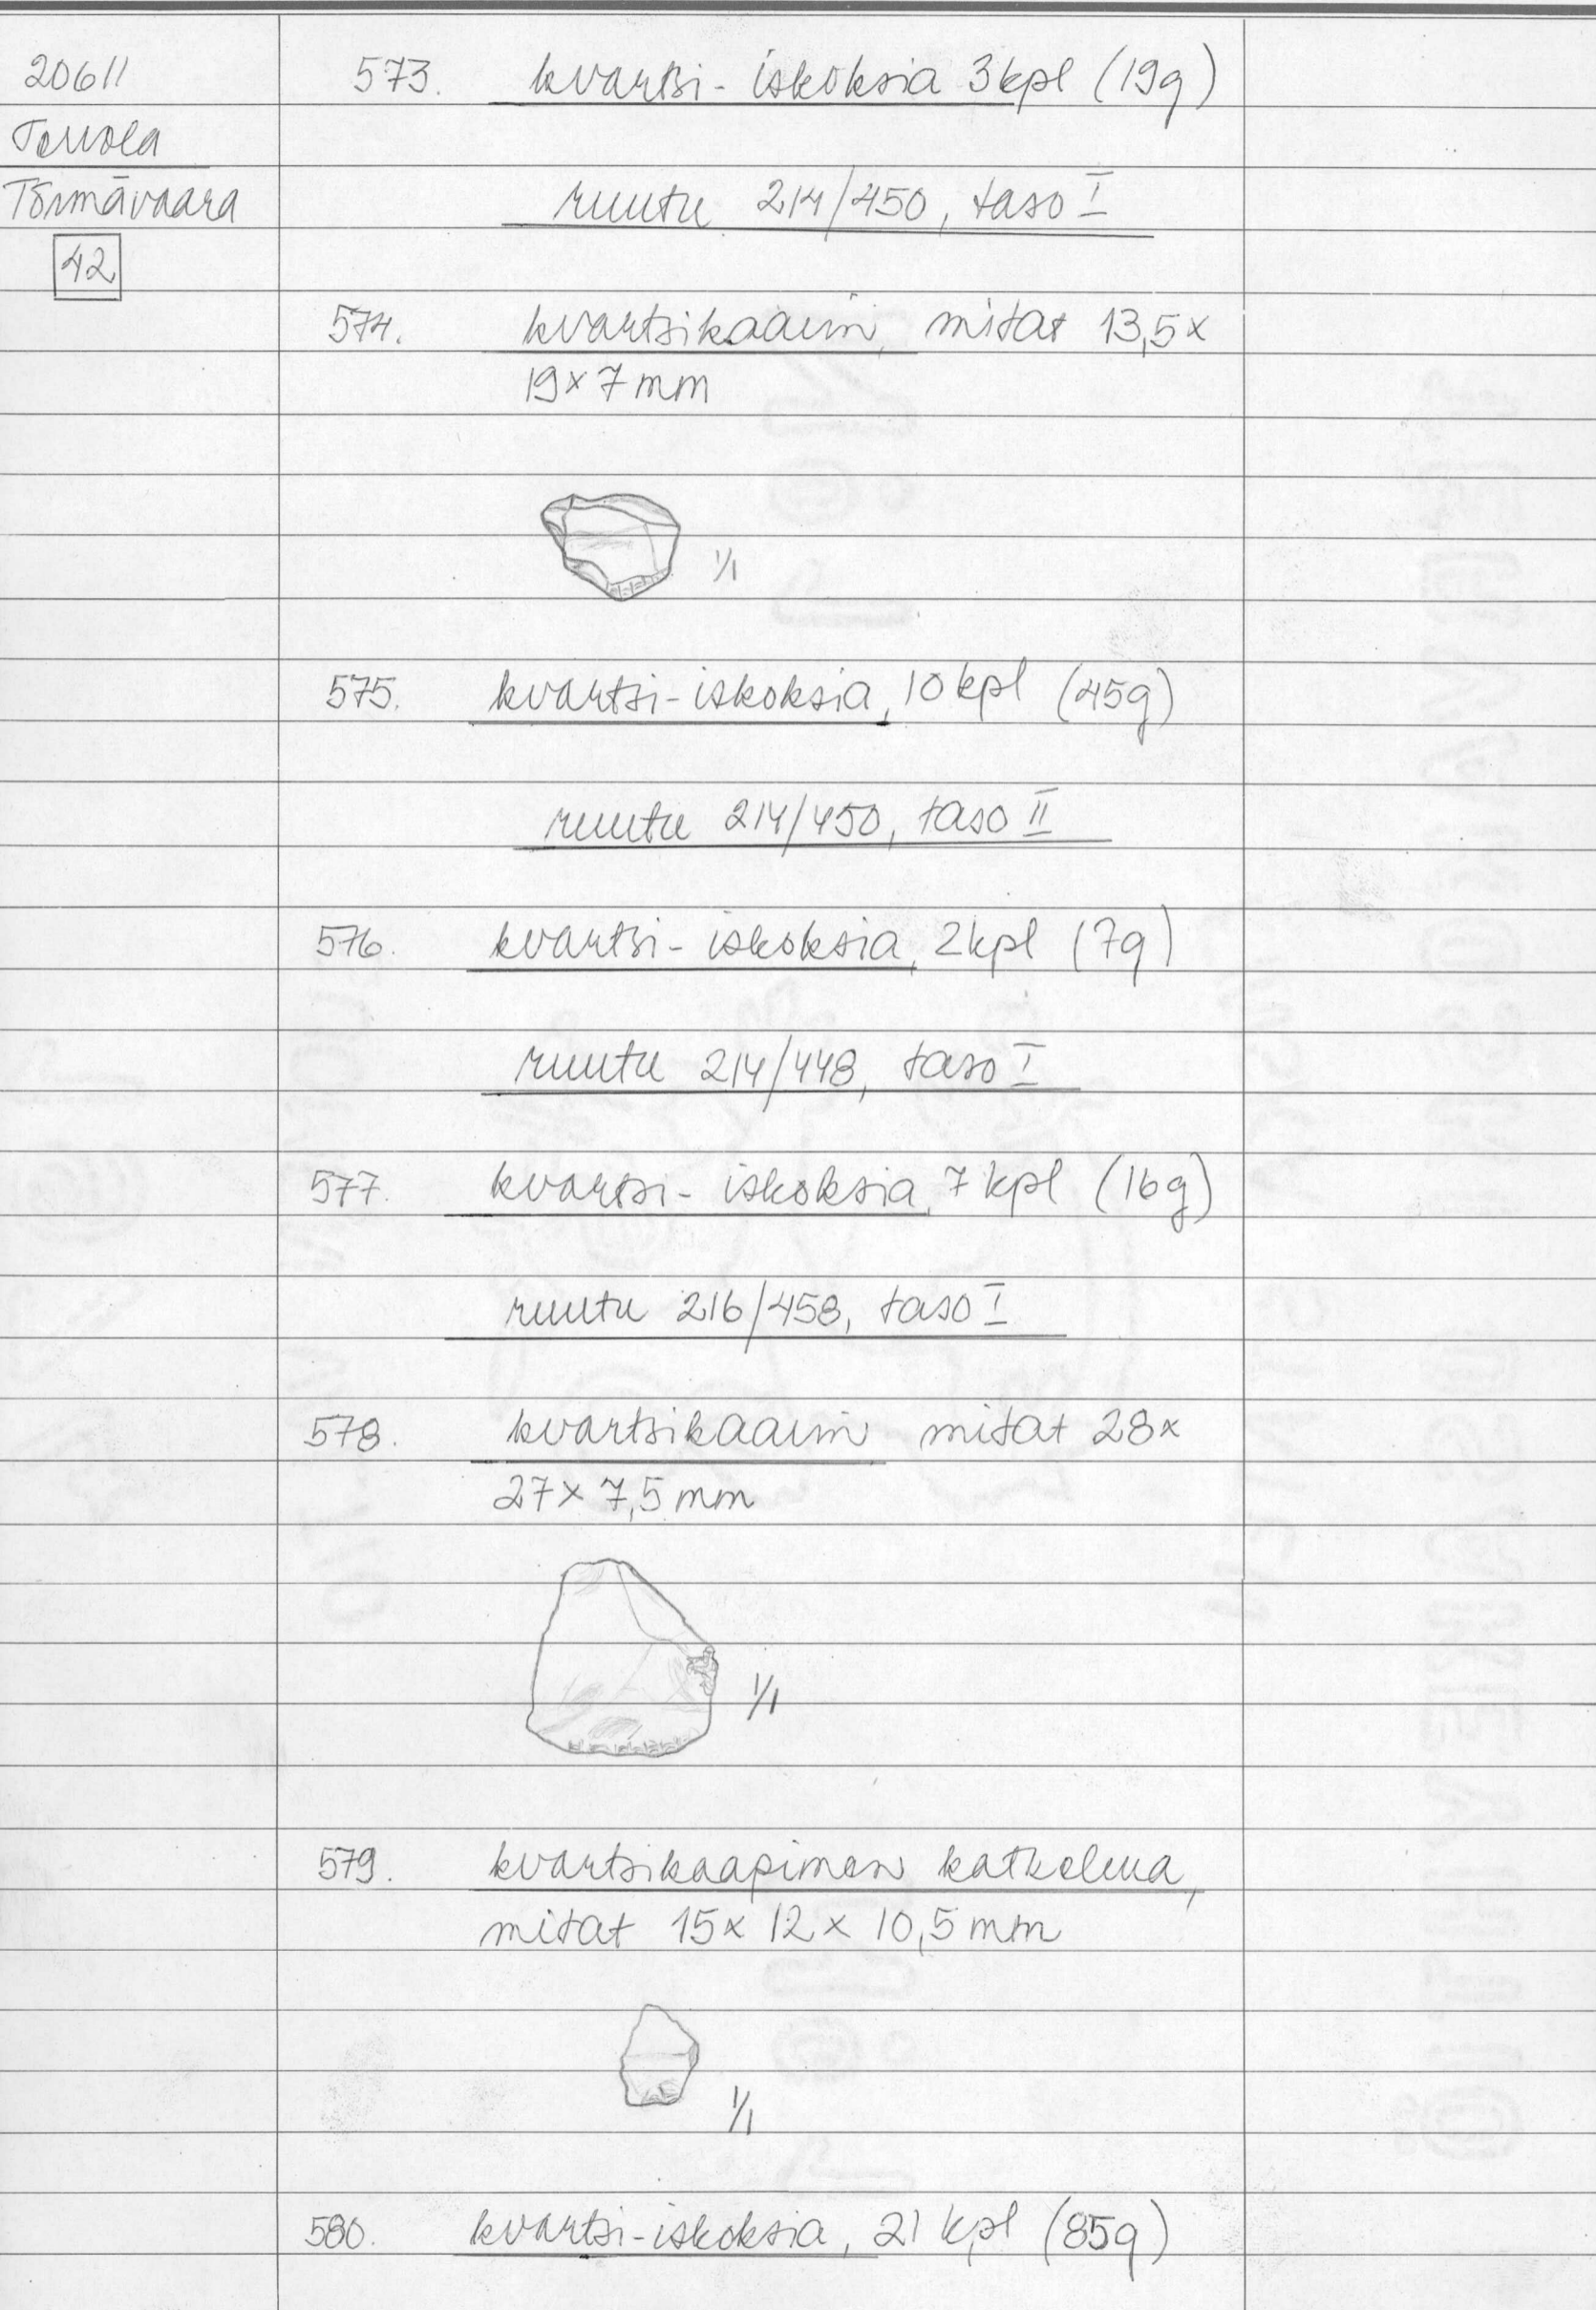 20611
Tervola
Törmävaara
42
573. kvartsi-iskoksia 3 kpl (19g)
ruutu 214/450, taso I
574. kvartsikaavin, mitat 13,5x
19x7mm
1/1
575. kvartsi-iskoksia, 10 kpl (45g)
ruutu 214/450, taso II
576. kvartsi-iskoksia, 2 kpl (7g)
ruutu 214/448, taso I
577. kvartsi-iskoksia, 7 kpl (16g)
ruutu 216/458, taso I
578. kvartsikaavin mitat 28x
27x7,5mm
1/1
579. kvartsikaapimen katkelma,
mitat 15x12x10,5mm
1/1
580. kvartsi-iskoksia, 21 kpl (85g)